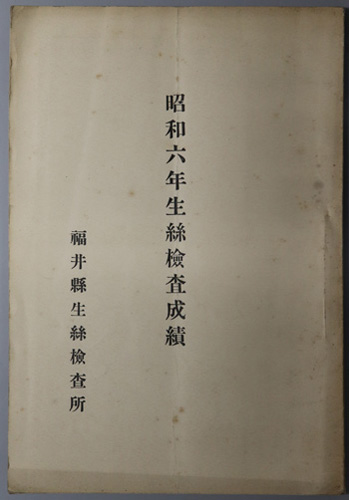 昭和六年生絲檢査成績
福井縣生絲檢査所